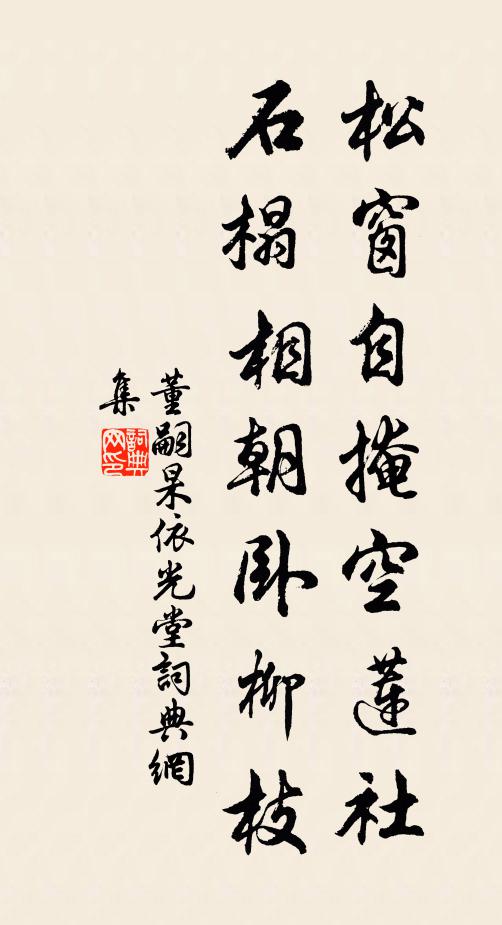 松窗自掩空蓮社
石榻相朝卧柳枝
董嗣杲依光堂詞典網
集
詞典网印